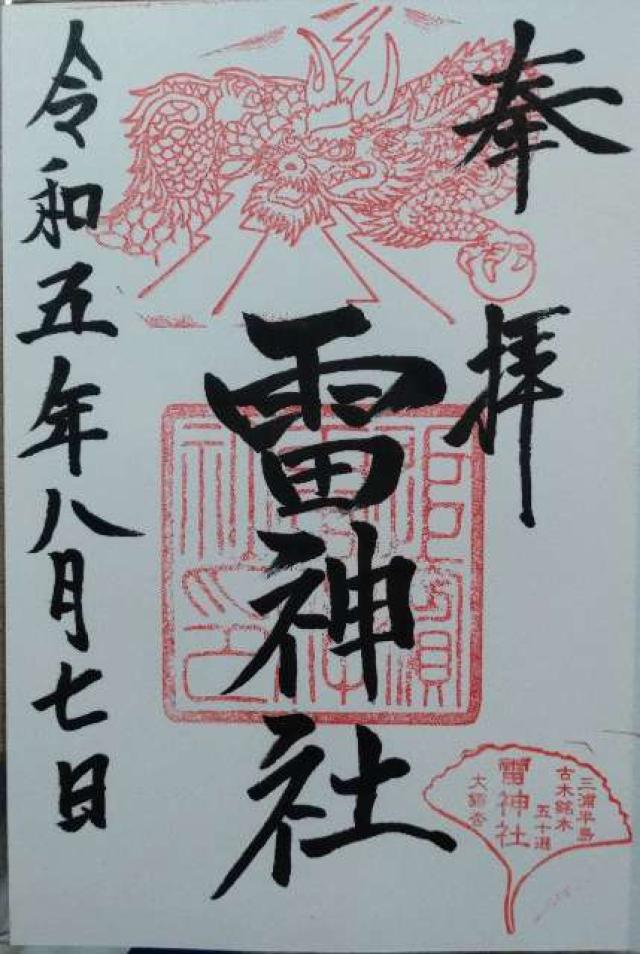 奉拝
雷神社
令和五年八月七日
三浦半島
古木銘木
五十選
雷神社
大銀杏